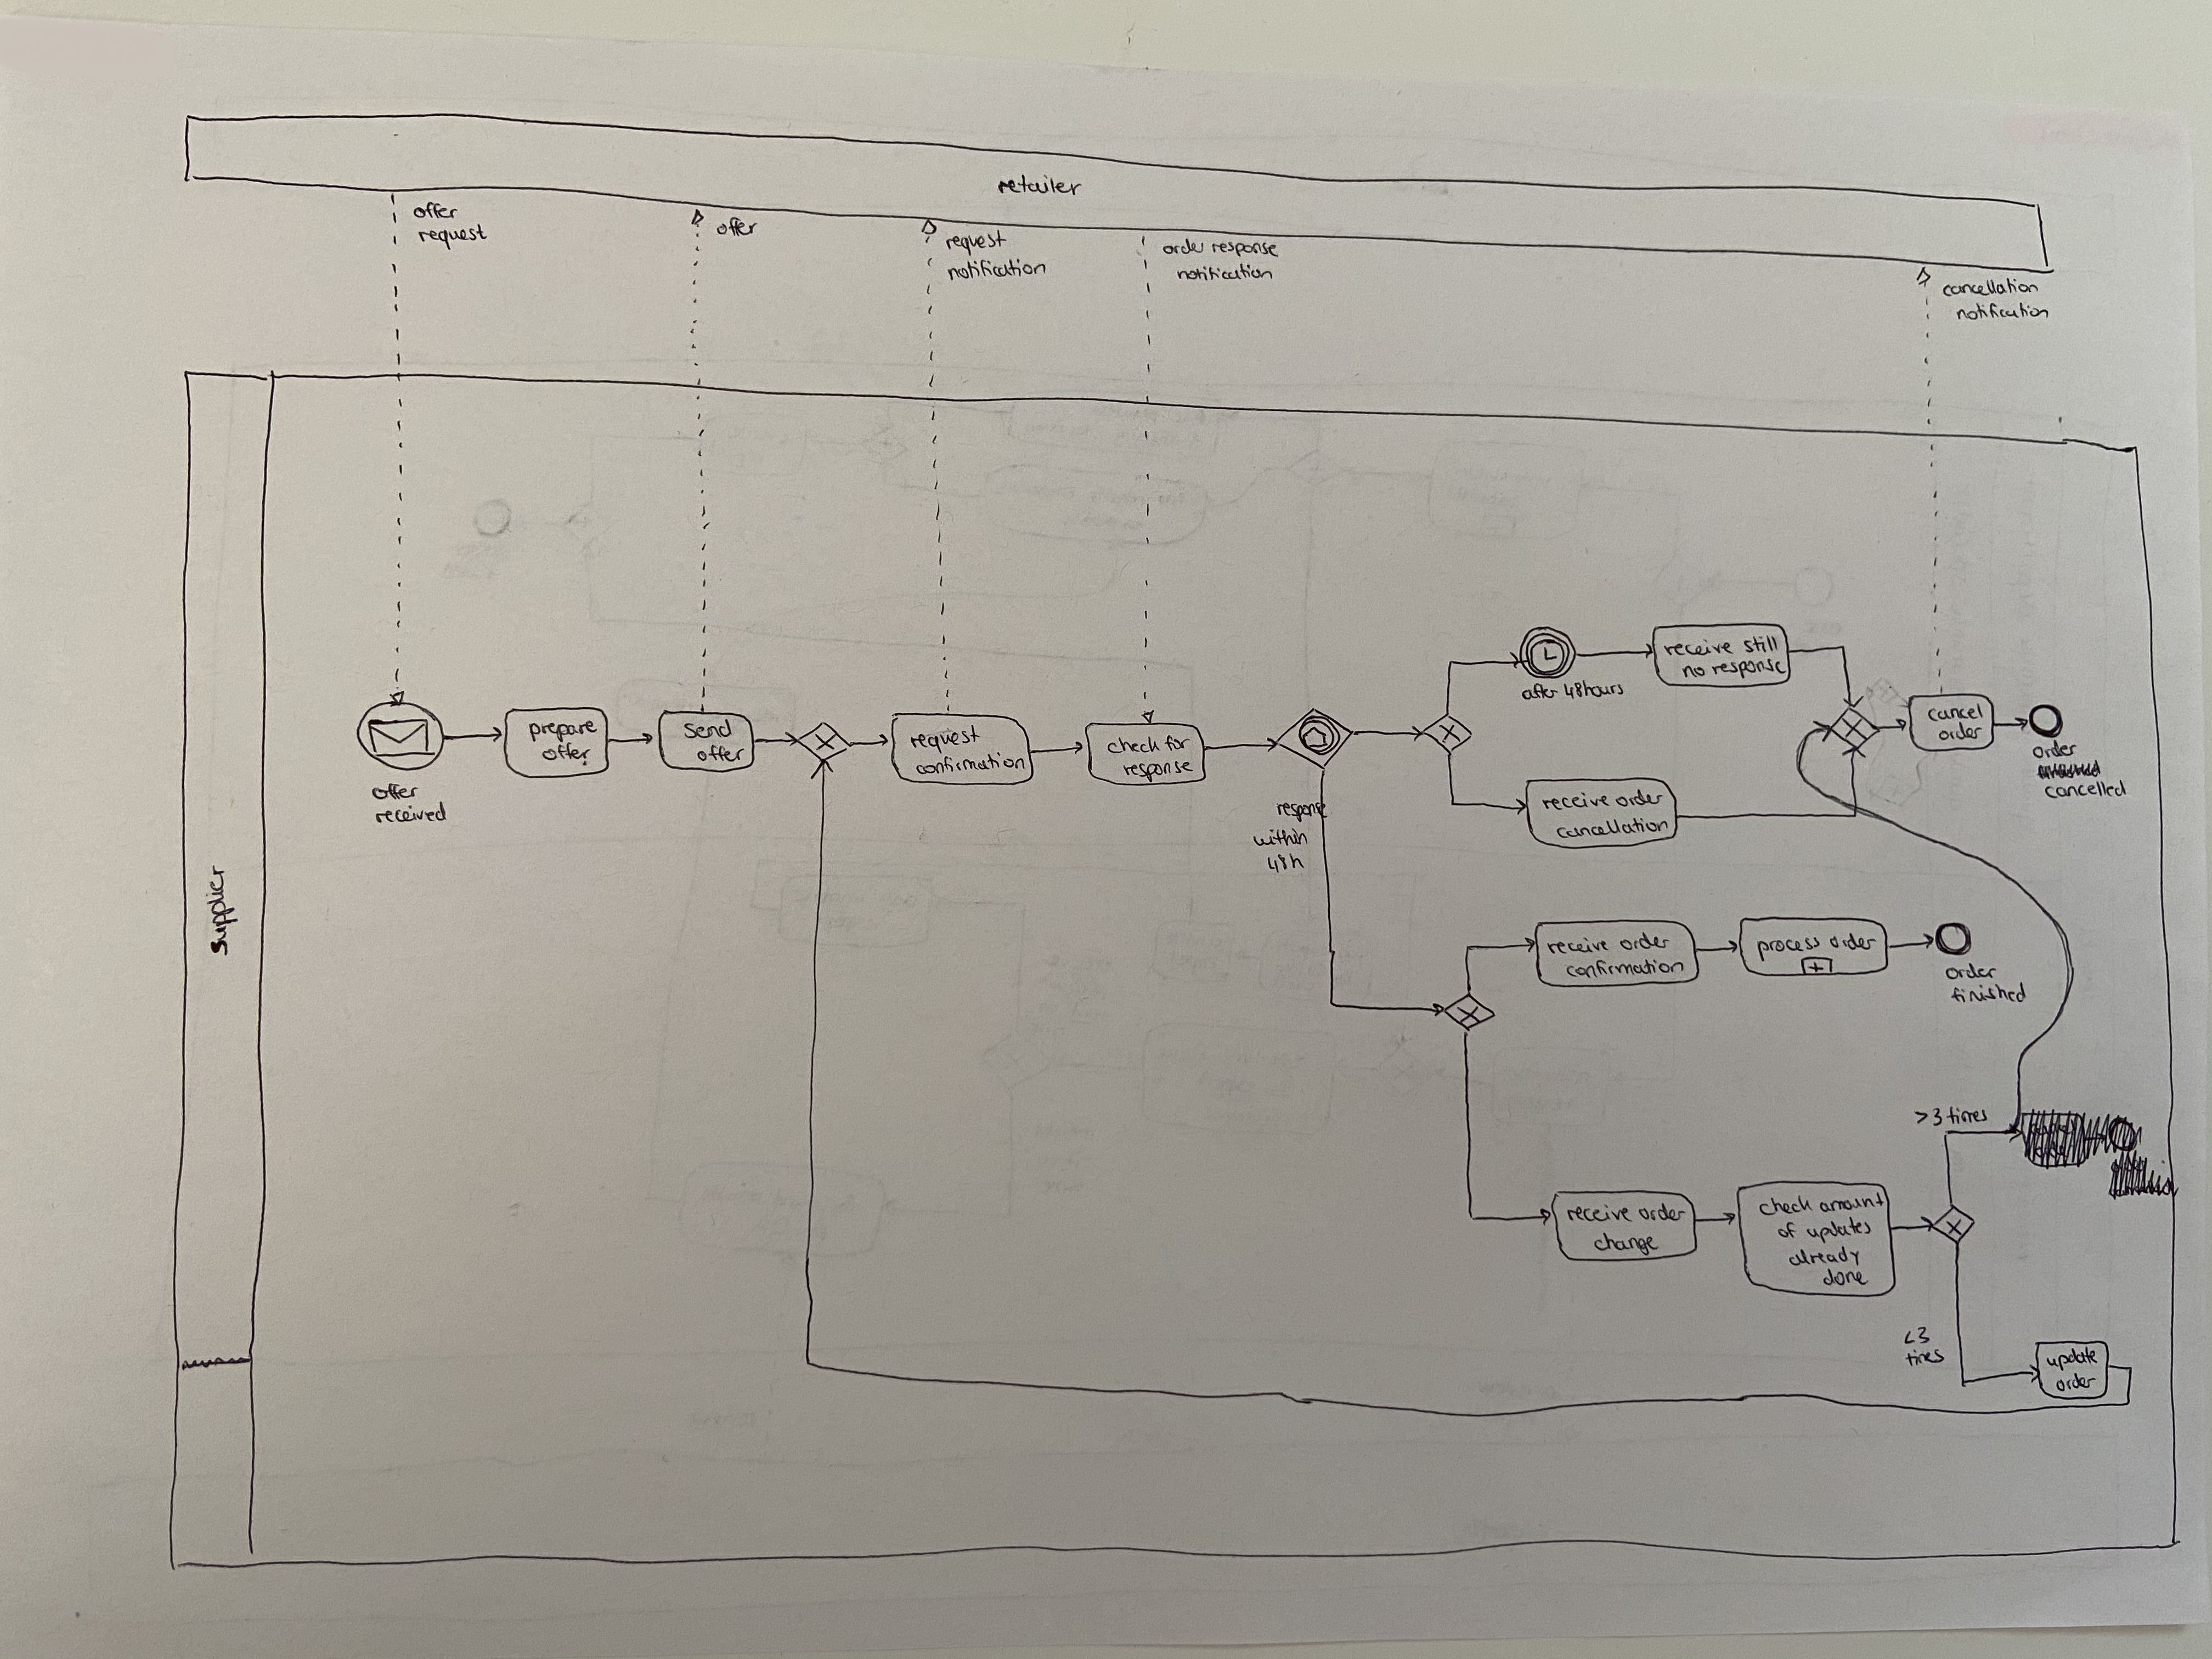 retailer
offer
request
offer
request
notification
order response
notification
cancellation
notification
Supplier
offer
received
prepare
offer
send
offer
request
confirmation
check for
response
response
within
48h
after 48hours
receive still
no response
receive order
cancellation
cancel
order
order
cancelled
receive order
confirmation
process order
order
finished
receive order
change
check amount
of updates
already
done
>3 times
<3
times
update
order